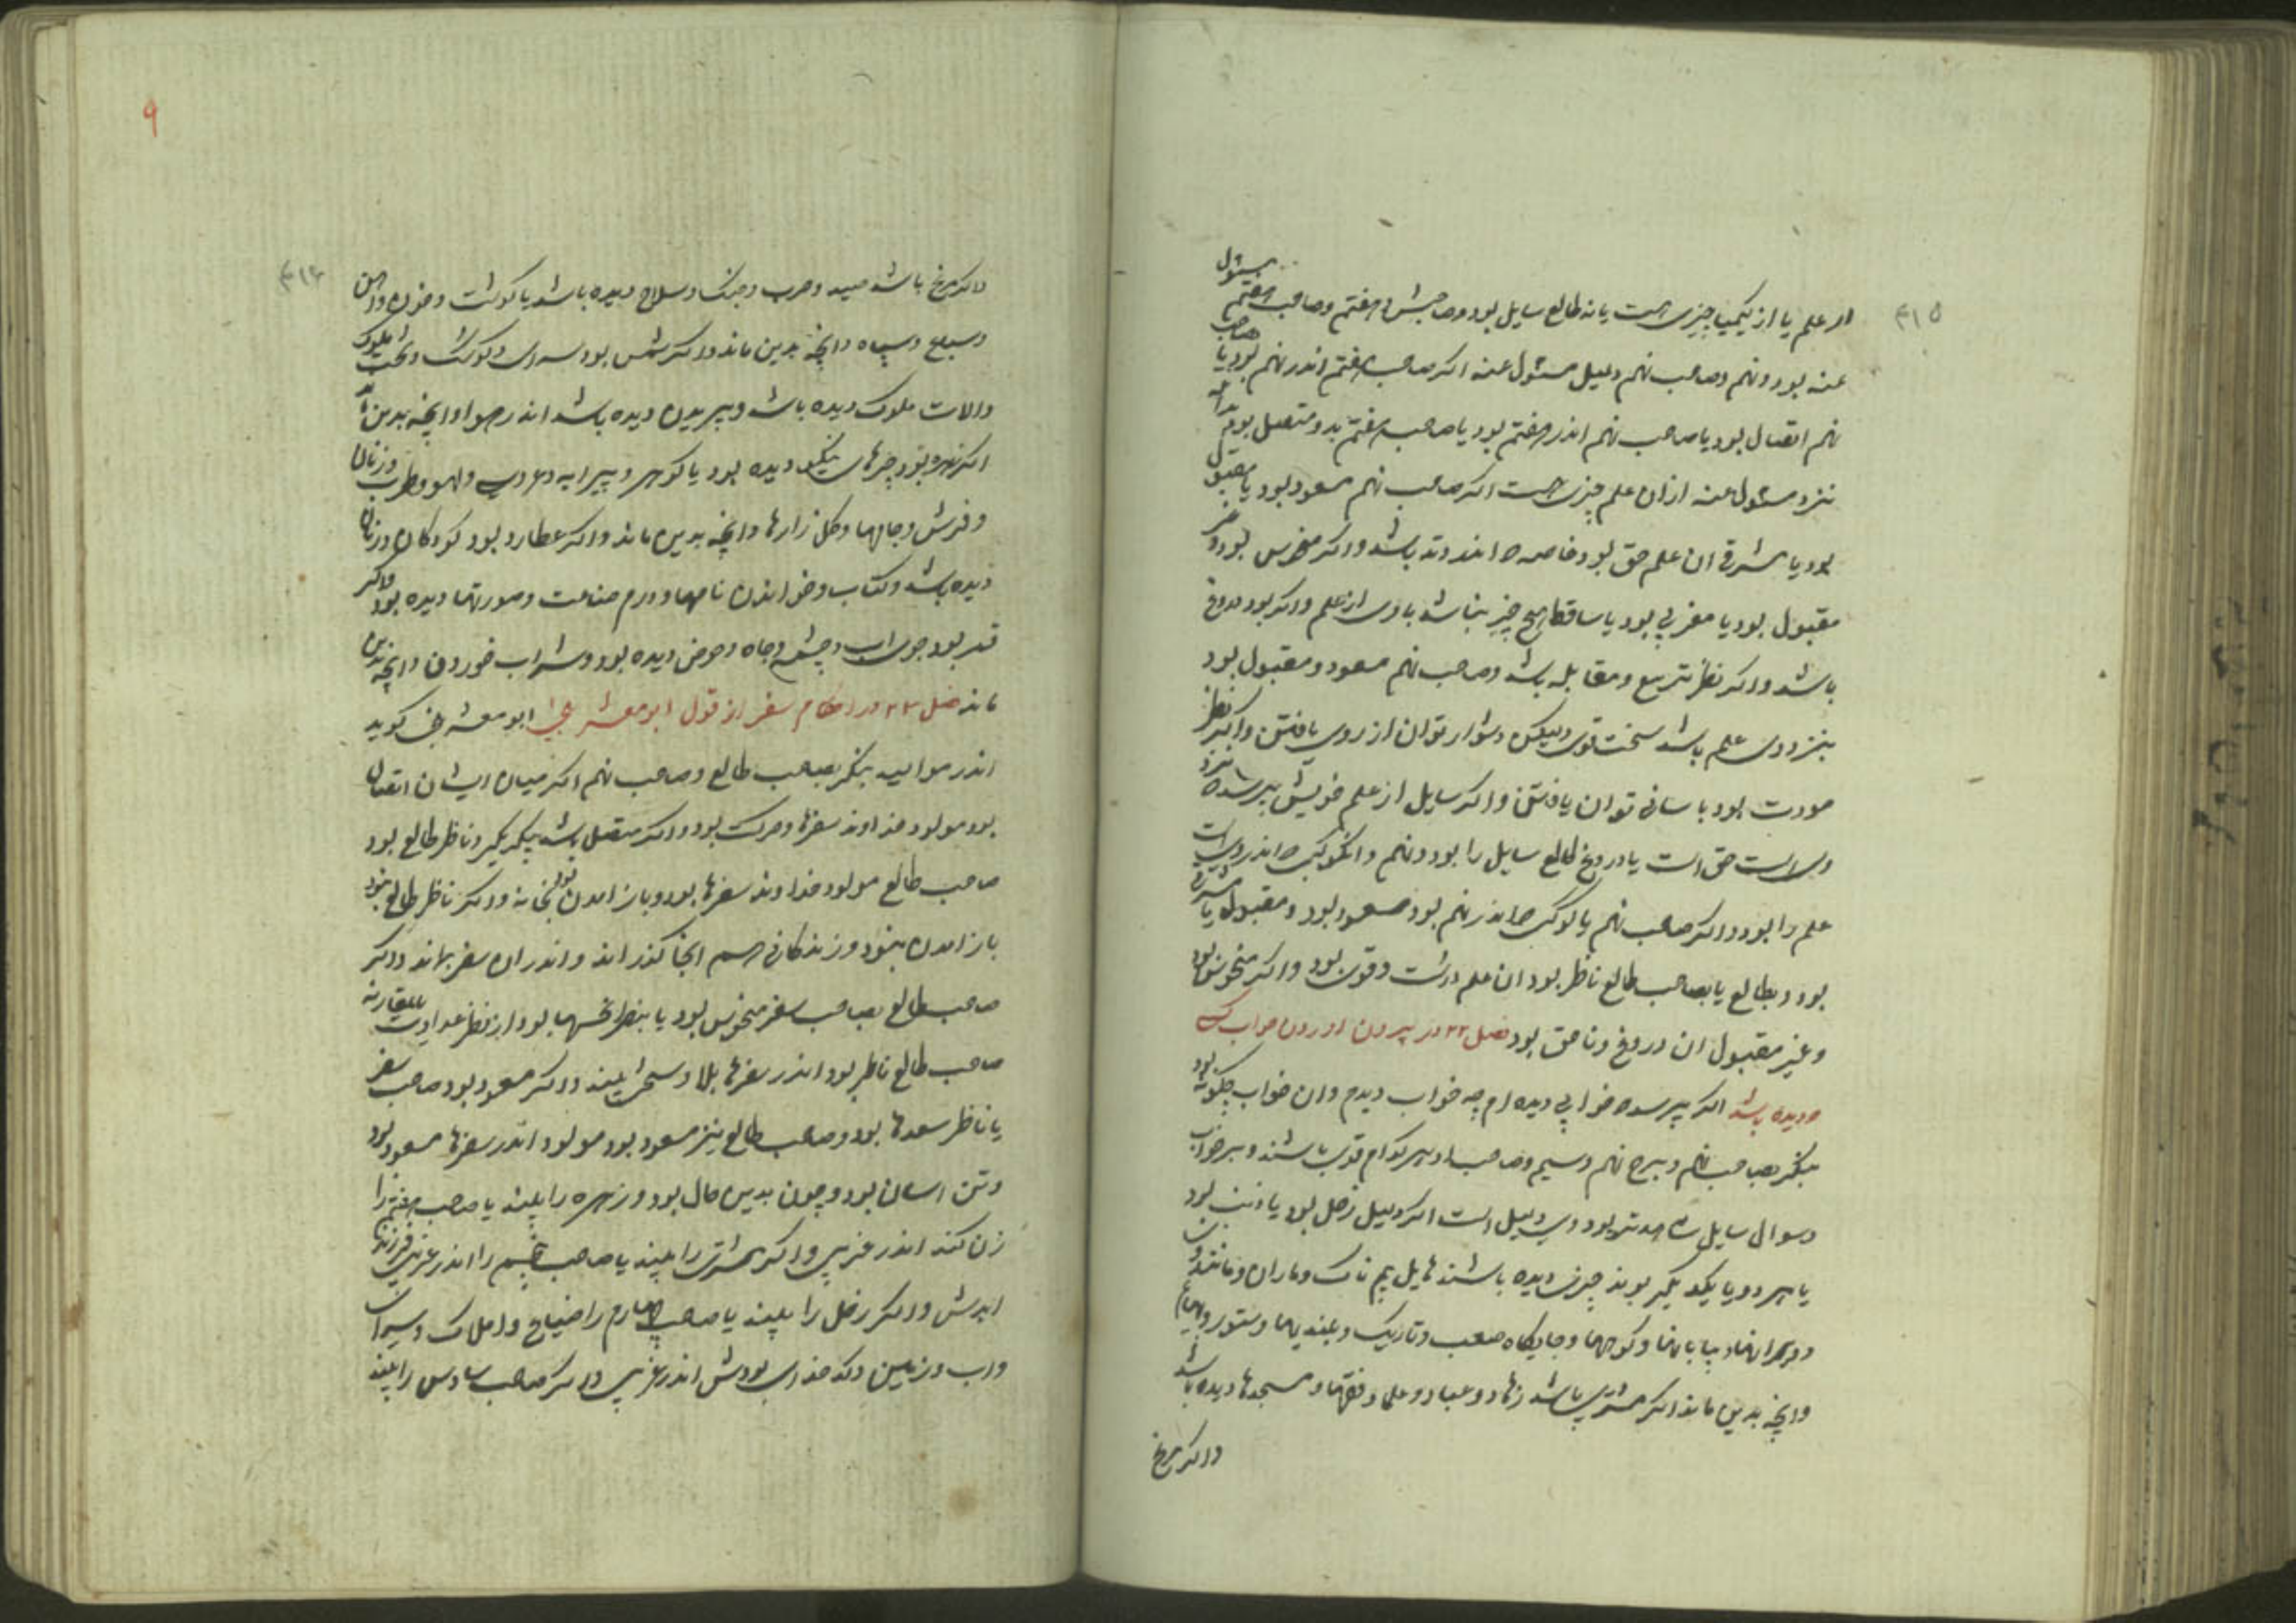 ۳۱۵
از علم یا از کیمیا چیزی هست یا نه طالع سایل بود و صاحبش و هفتم و صاحب هفتم مسئول
عنه بود و نهم و صاحب نهم دلیل مسئول عنه اکر صاحب هفتم اندر نهم بود یا صاحب
نهم اتصال بود یا صاحب نهم اندر هفتم بود یا صاحب هفتم بدو متصل بود
نزد مسئول عنه ازان علم چیزی هست اکر صاحب نهم مسعود بود یا مقبول
بود یا مشرقی ان علم حق بود خاصه باشد واکر منحوس بود و غیر
مقبول بود یا مغربی بود یا ساقط هیچ چیز نباشد باوی از علم واکر بود دروغ
باشد واکر نظر تربیع و مقابله باشد و صاحب نهم مسعود و مقبول بود
بنزد وی علم باشد سخت قوی ولیکن دشوار توان از روی یافتن واکر نظر
مودت بود باسانی توان یافتن واکر سایل از علم خویش پرسد
حق است یا دروغ طالع سایل را بود و نهم و انکوکب که اندر ویست
علم را بود واکر صاحب نهم یا کوکب که اندر نهم بود مسعود بود و مقبول یا مشرقی
بود و بطالع یا بصاحب طالع ناظر بود ان علم درست و قوی بود واکر منحوس بود
و غیر مقبول ان دروغ و ناحق بود فصل ۲۲ در بیرون اوردن خواب که
دیده باشد اکر پرسد که خوابی دیده ام چه خواب دیدم وان خواب چکونه بود
بنکر بصاحب نهم و ببرج نهم وسیم و صاحب او هر کدام قوی باشند و بر خواب
و سوال سایل شاهدتر بود وی دلیل است اکر دلیل زحل بود یا ذنب بود
یا هر دو با یکدیکر بوند چیزی دیده باشند هایل بیم ناک و ماران و مانند ان
و ویرانها و بیابانها و کوهها و جایکاه صعب و تاریک و بلندیها و ستور
وانچه بدین ماند اکر مشتری باشد زهاد و عباد و علما و فقها و مسجدها دیده باشد
واکر مریخ
۹
واکر مریخ باشد صید و حرب و جنک و سلاح دیده باشد یا کوشت و خون و اهن
و سباع و سپاه وانچه بدین ماند واکر شمس بود سرای و کوشک و تخت ملوک
والات ملوک دیده باشد و پریدن دیده باشد اندر هوا وانچه بدین ماند
اکر زهره بود چیزهای نیکو دیده بود یا کوهر و پیرایه و عروسی و لهو و طرب و زنان
و فرش و جامها و کل زارها وانچه بدین ماند واکر عطارد بود کودکان و زنان
دیده باشد و کتاب و خواندن نامها و درم و صناعت و صورتها دیده بود واکر
قمر بود جوی اب و چشمه و چاه و حوض دیده بود و شراب خوردن وانچه بدین
ماند فصل ۲۳ در احکام سفر از قول ابومعشر بلخی ابومعشر بلخی کوید
اندر موالید بنکر بصاحب طالع و صاحب نهم اکر میان ایشان اتصال
بود مولود خداوند سفرها و حرکت بود واکر متصل باشد بیکدیکر و ناظر طالع بود
صاحب طالع مولود خداوند سفرها بود و باز امدن بود بخانه واکر ناظر طالع نبود
باز امدن نبود و زندکانی هم انجا کذراند واندران سفر بماند واکر
صاحب طالع بصاحب سفر منحوس بود یا بنظر نحسها بود از نظر عداوت یا مقارنه
صاحب طالع ناظر بود اندر سفرها بلا و سختی بیند واکر مسعود بود صاحب سفر
یا ناظر سعدها بود و صاحب طالع نیز مسعود بود مولود اندر سفرها مسعود بود
و تن اسان بود و چون بدین حال بود و زهره را بیند یا صاحب هفتم را
زن کند اندر غریبی واکر مشتری را بیند یا صاحب پنجم را اندر غریبی فرزند
ایدش واکر زحل را بیند یا صاحب چهارم را ضیاع و املاک
واب و زمین و کدخدای بودش اندر غریبی واکر صاحب سادس را بیند